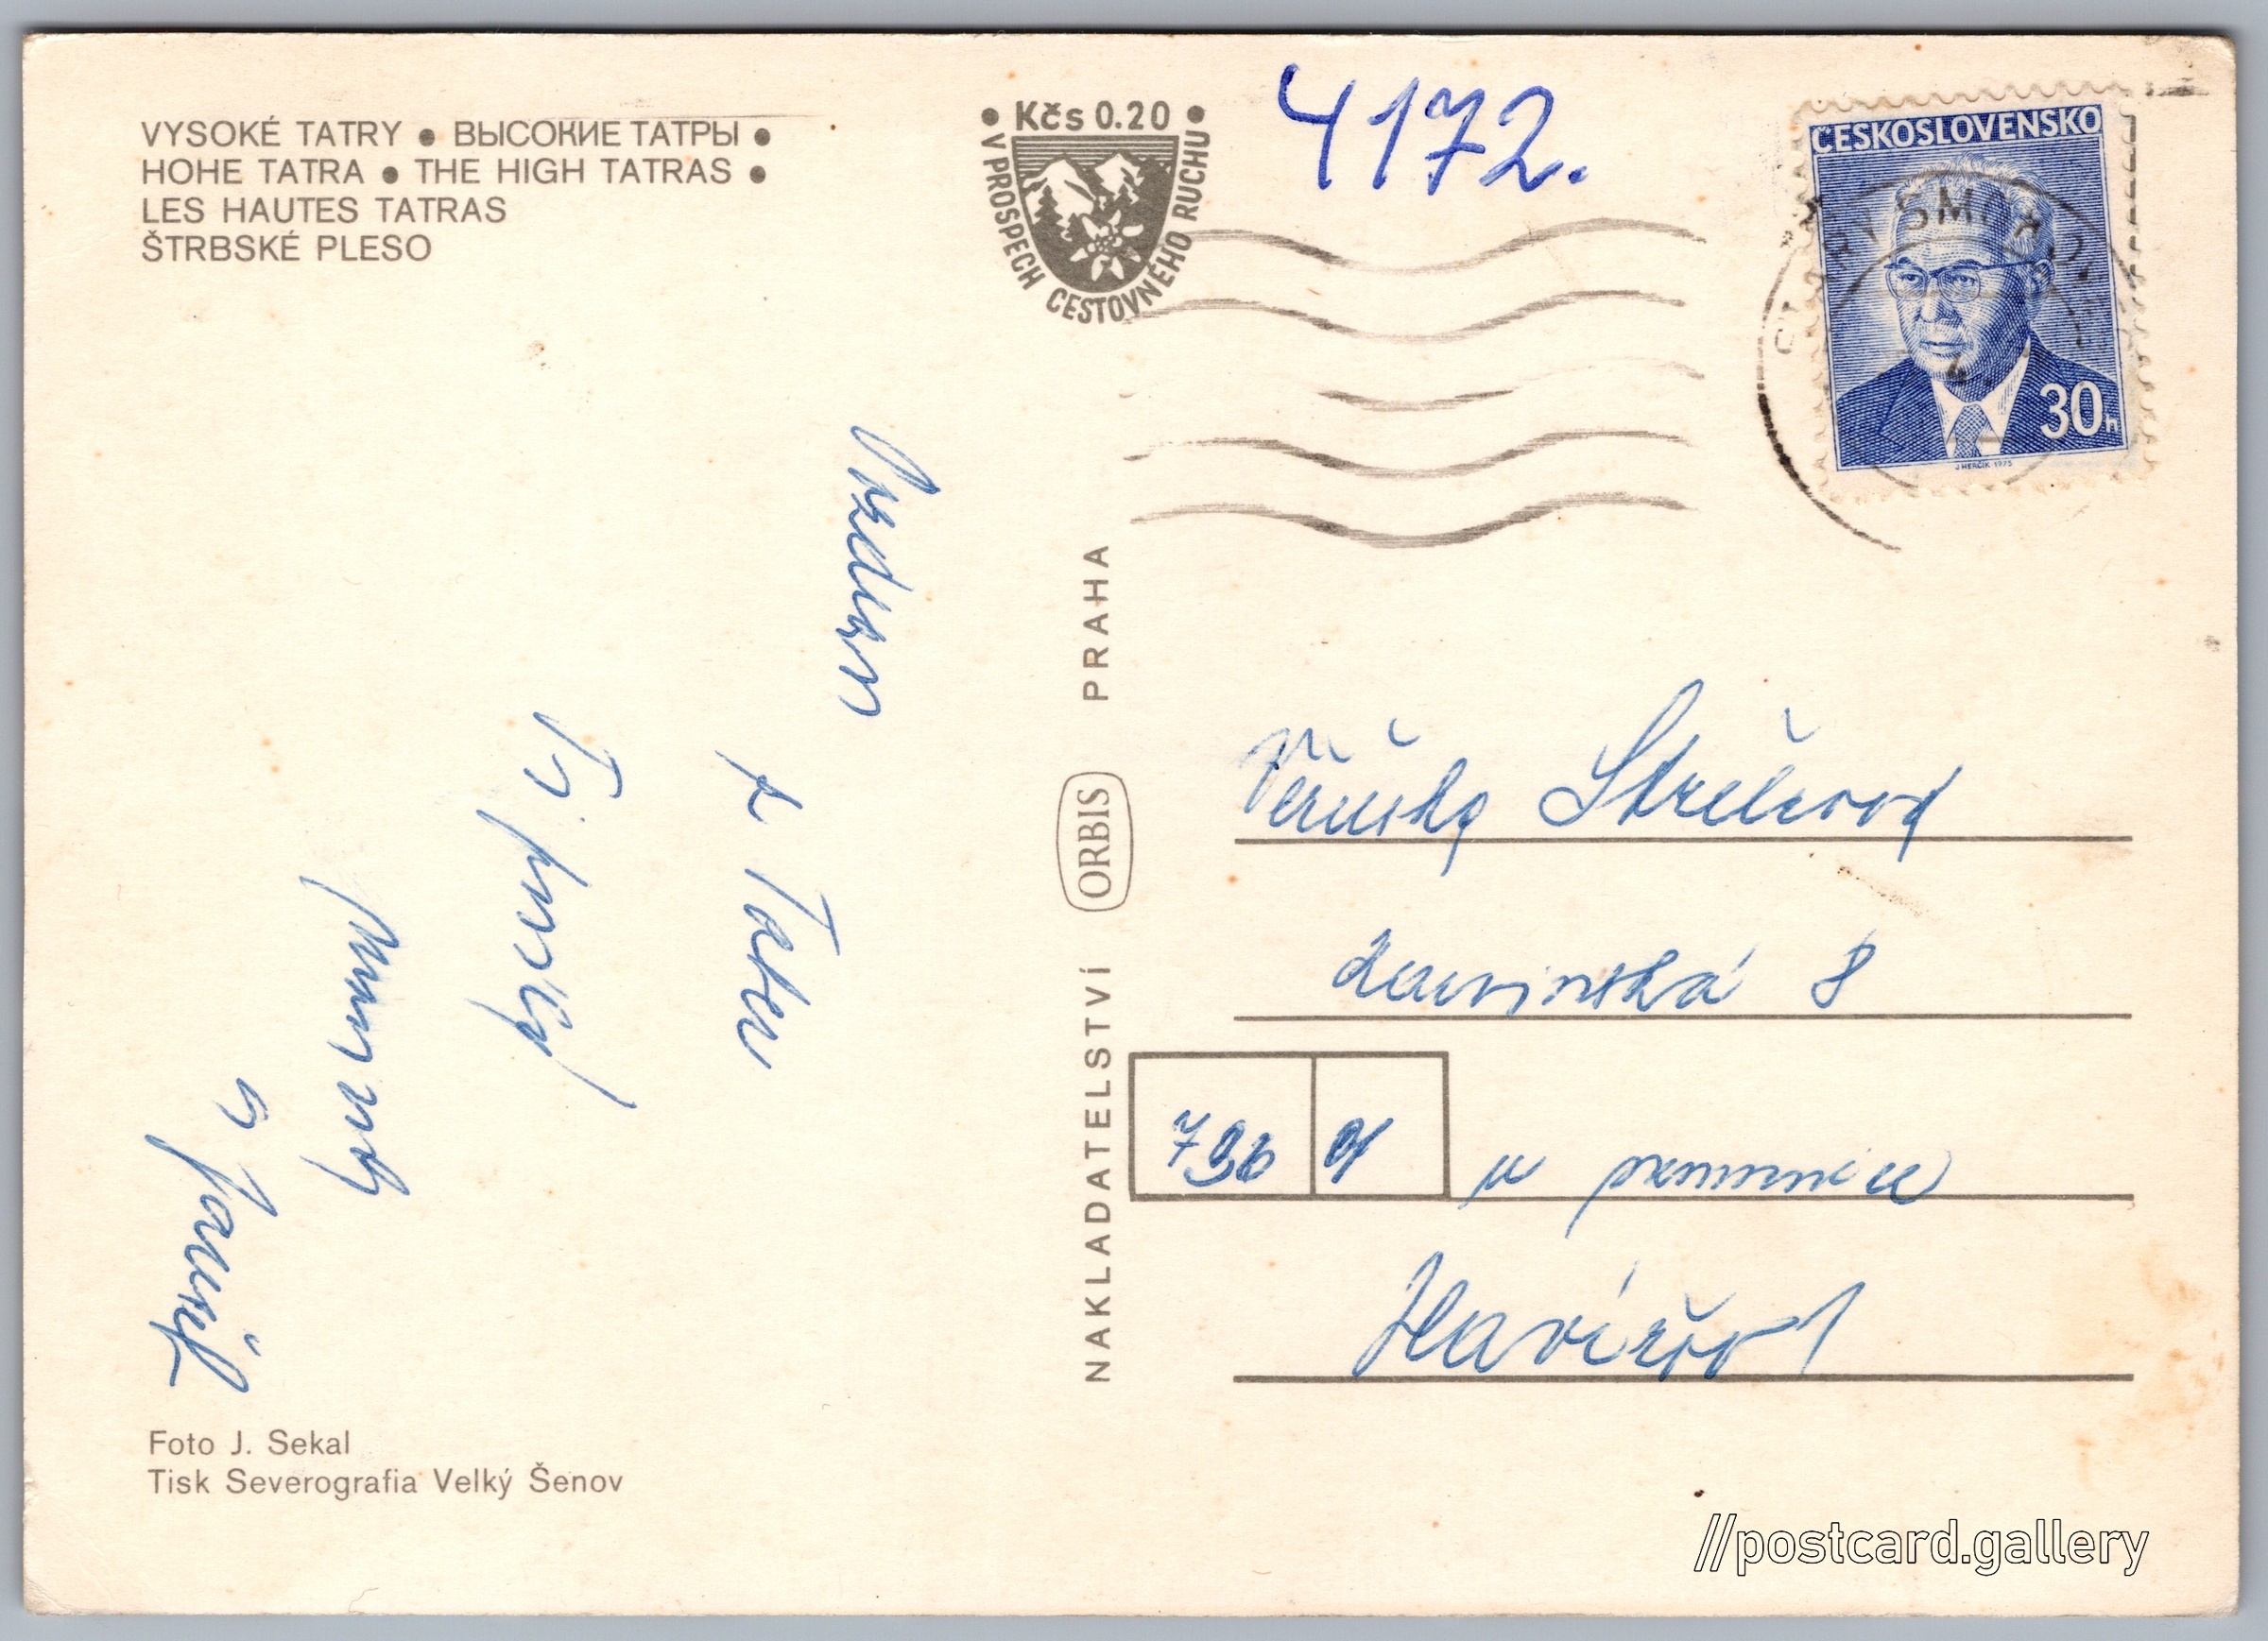 VYSOKÉ TATRY ● ВЫСОКИЕ ТАТРЫ ●
HOHE TATRA ● THE HIGH TATRAS ●
LES HAUTES TATRAS
ŠTRBSKÉ PLESO
● Kčs 0.20 ●
V PROSPECH CESTOVNÉHO RUCHU
4172.
ČESKOSLOVENSKO
STARÝ SMOKOVEC
30h
J HERČÍK 1975
Pozdrav
z Tater
Ti posílá
a Janušek
NAKLADATELSTVÍ ORBIS PRAHA
Věruška
8
736 01
Havířov 1
Foto J. Sekal
Tisk Severografia Velký Šenov
//postcard.gallery